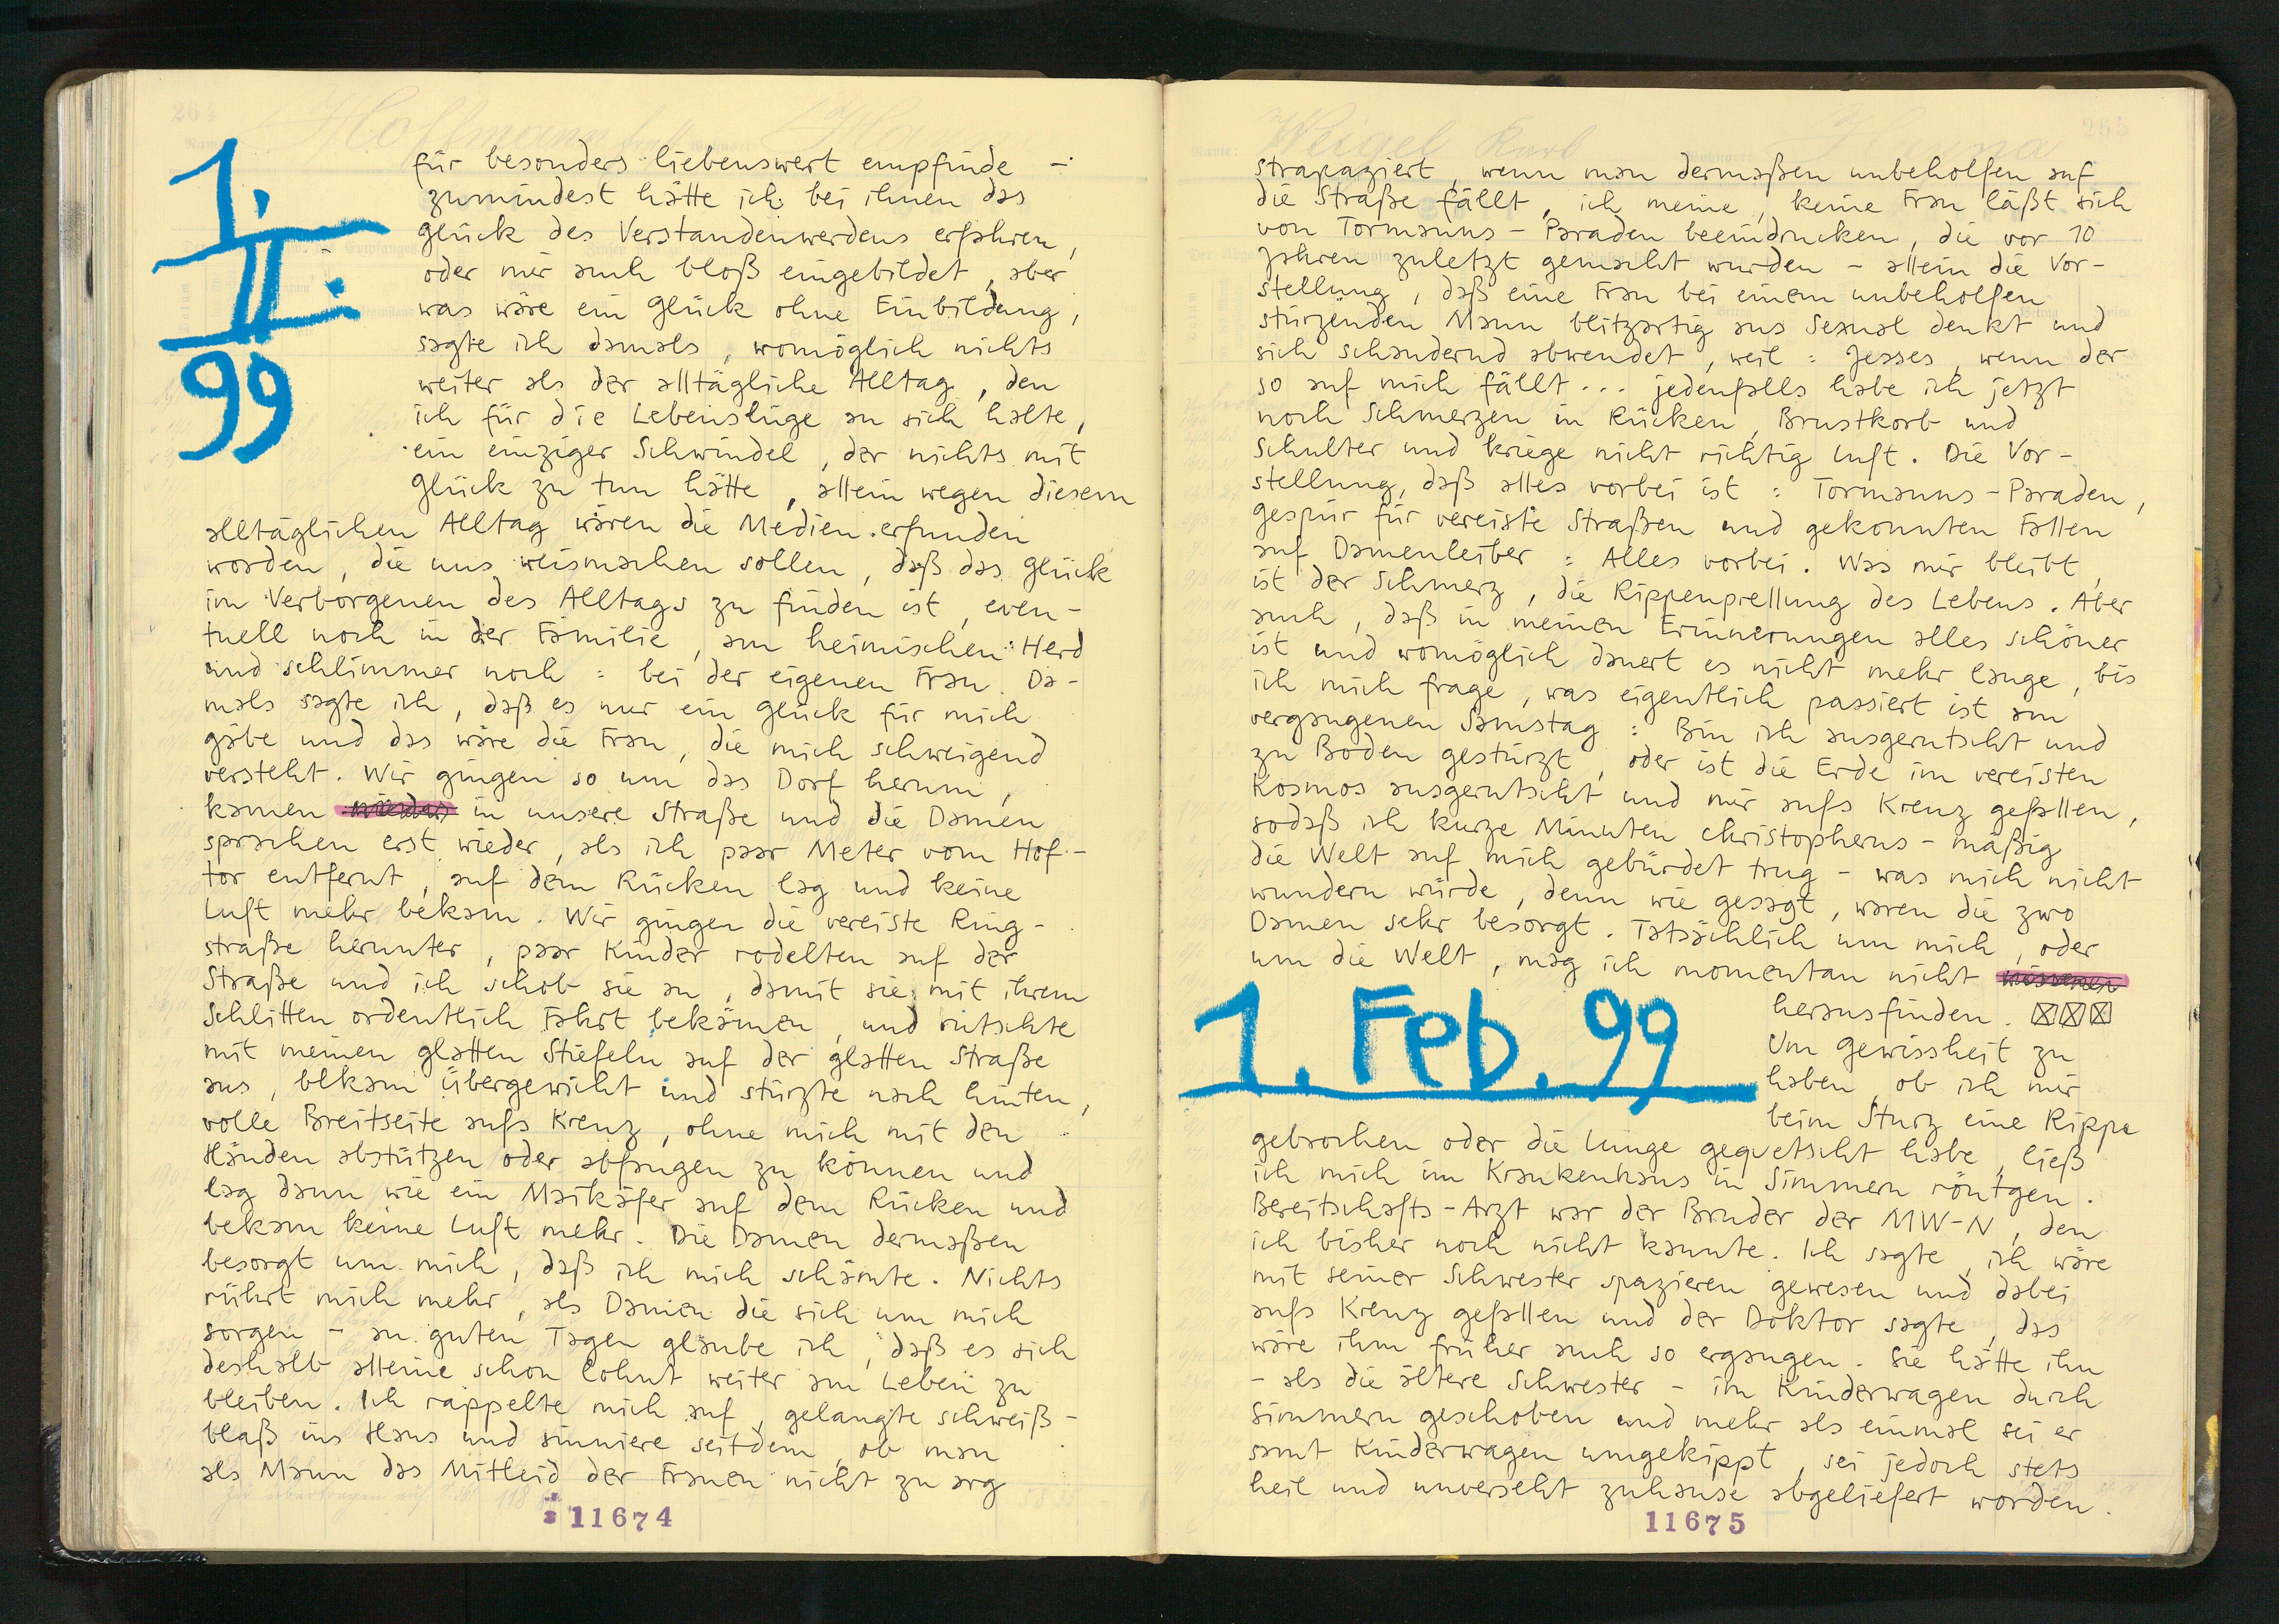 1.
II.
99
für besonders liebenswert empfinde –
zumindest hätte ich bei ihnen das
Glück des Verstandenwerdens erfahren,
oder mir auch bloß eingebildet, aber
was wäre ein Glück ohne Einbildung,
sagte ich damals, womöglich nichts
weiter als der alltägliche Alltag, den
ich für die Lebenslüge an sich halte,
ein einziger Schwindel, der nichts mit
Glück zu tun hätte, allein wegen diesem
alltäglichen Alltag wären die Medien erfunden
worden, die uns weismachen sollen, daß das Glück
im Verborgenen des Alltags zu finden ist, even-
tuell noch in der Familie, am heimischen Herd
und schlimmer noch : bei der eigenen Frau. Da-
mals sagte ich, daß es nur ein Glück für mich
gäbe und das wäre die Frau, die mich schweigend
versteht. Wir gingen so um das Dorf herum,
kamen wieder in unsere Straße und die Damen
sprachen erst wieder, als ich paar Meter vom Hof-
tor entfernt, auf dem Rücken lag und keine
Luft mehr bekam. Wir gingen die vereiste Ring-
straße herunter, paar Kinder rodelten auf der
Straße und ich schob sie an, damit sie mit ihrem
Schlitten ordentlich Fahrt bekämen, und rutschte
mit meinen glatten Stiefeln auf der glatten Straße
aus, bekam Übergewicht und stürzte nach hinten,
volle Breitseite aufs Kreuz, ohne mich mit den
Händen abstützen oder abfangen zu können und
lag dann wie ein Maikäfer auf dem Rücken und
bekam keine Luft mehr. Die Damen dermaßen
besorgt um mich, daß ich mich schämte. Nichts
rührt mich mehr, als Damen die sich um mich
sorgen – an guten Tagen glaube ich, daß es sich
deshalb alleine schon lohnt weiter am Leben zu
bleiben. Ich rappelte mich auf, gelangte schweiß-
blaß ins Haus und sinniere seitdem, ob man
als Mann das Mitleid der Frauen nicht zu arg
11674
strapaziert, wenn man dermaßen unbeholfen auf
die Straße fällt, ich meine, keine Frau läßt sich
von Tormanns-Paraden beeindrucken, die vor 10
Jahren zuletzt gemacht wurden – allein die Vor-
stellung, daß eine Frau bei einem unbeholfen
stürzenden Mann blitzartig ans Sexual denkt und
sich schaudernd abwendet, weil : Jesses, wenn der
so auf mich fällt ... jedenfalls habe ich jetzt
noch Schmerzen in Rücken, Brustkorb und
Schulter und kriege nicht richtig Luft. Die Vor-
stellung, daß alles vorbei ist : Tormanns-Paraden,
Gespür für vereiste Straßen und gekonnten Fallen
auf Damenleiber : Alles vorbei. Was mir bleibt,
ist der Schmerz, die Rippenprellung des Lebens. Aber
auch, daß in meinen Erinnerungen alles schöner
ist und womöglich dauert es nicht mehr lange, bis
ich mich frage, was eigentlich passiert ist am
vergangenen Samstag : Bin ich ausgerutscht und
zu Boden gestürzt, oder ist die Erde im vereisten
Kosmos ausgerutscht und mir aufs Kreuz gefallen,
sodaß ich kurze Minuten christopherus-mäßig
die Welt auf mich gebürdet trug – was mich nicht
wundern würde, denn wie gesagt, waren die zwo
Damen sehr besorgt. Tatsächlich um mich, oder
um die Welt, mag ich momentan nicht
herausfinden.
1. Feb. 99
Um Gewissheit zu
haben, ob ich mir
beim Sturz eine Rippe
gebrochen oder die Lunge gequetscht habe, ließ
ich mich im Krankenhaus in Simmern röntgen.
Bereitschafts-Arzt war der Bruder der MW-N, den
ich bisher noch nicht kannte. Ich sagte, ich wäre
mit seiner Schwester spazieren gewesen und dabei
aufs Kreuz gefallen und der Doktor sagte, das
wäre ihm früher auch so ergangen. Sie hätte ihn
– als die ältere Schwester – im Kinderwagen durch
Simmern geschoben und mehr als einmal sei er
samt Kinderwagen umgekippt, sei jedoch stets
heil und unversehrt zuhause abgeliefert worden.
11675